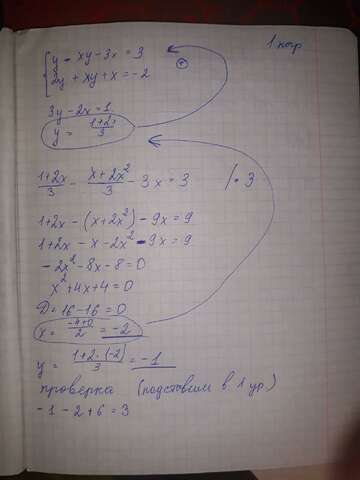 1 погр
{ y - xy - 3x = 3
2y + xy + x = -2
+
3y - 2x = 1
y = (1+2x)/3
(1+2x)/3 - (x+2x²)/3 - 3x = 3 /·3
1+2x - (x+2x²) - 9x = 9
1+2x - x - 2x² - 9x = 9
-2x² - 8x - 8 = 0
x² + 4x + 4 = 0
D = 16 - 16 = 0
x = (-4+0)/2 = -2
y = (1+2·(-2))/3 = -1
проверка (подставим в 1 ур.)
-1 - 2 + 6 = 3